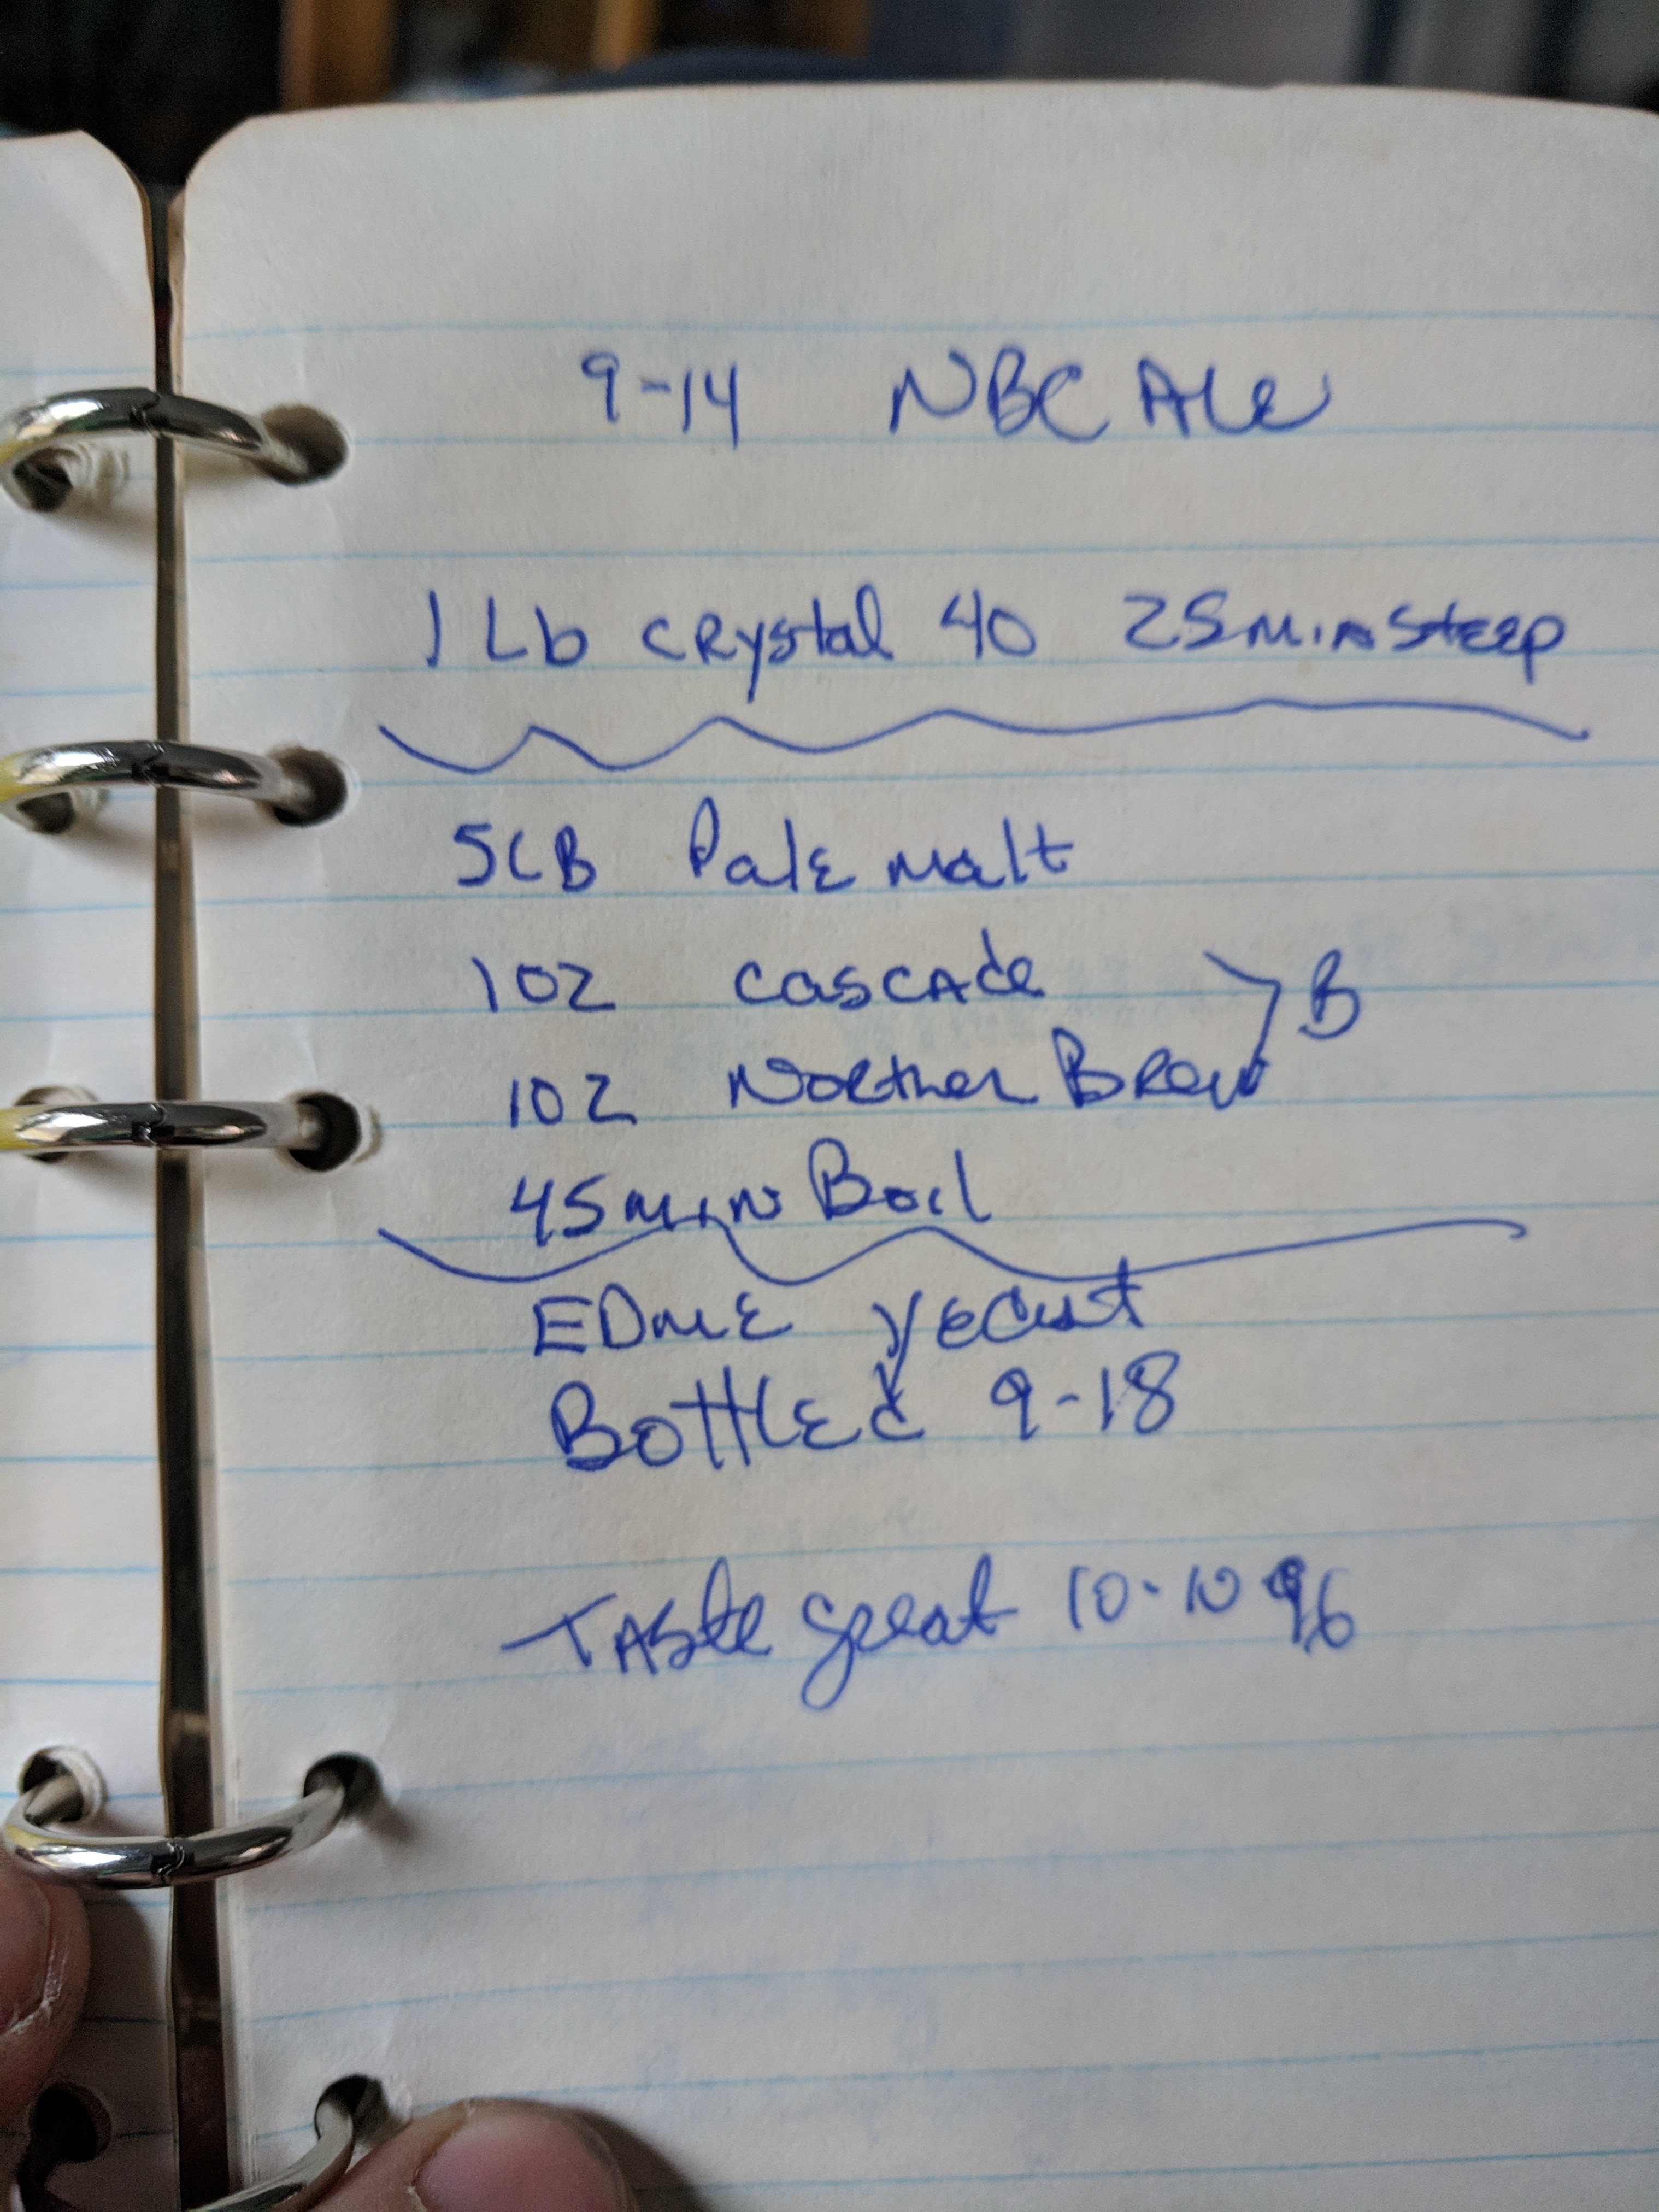 9-14 NBC Ale
1 Lb crystal 40 25 min steep
5LB Pale malt
1oz cascade
B
1oz Norther Brew
45 min Boil
EDME yeast
Bottled 9-18
Taste great 10-10 96